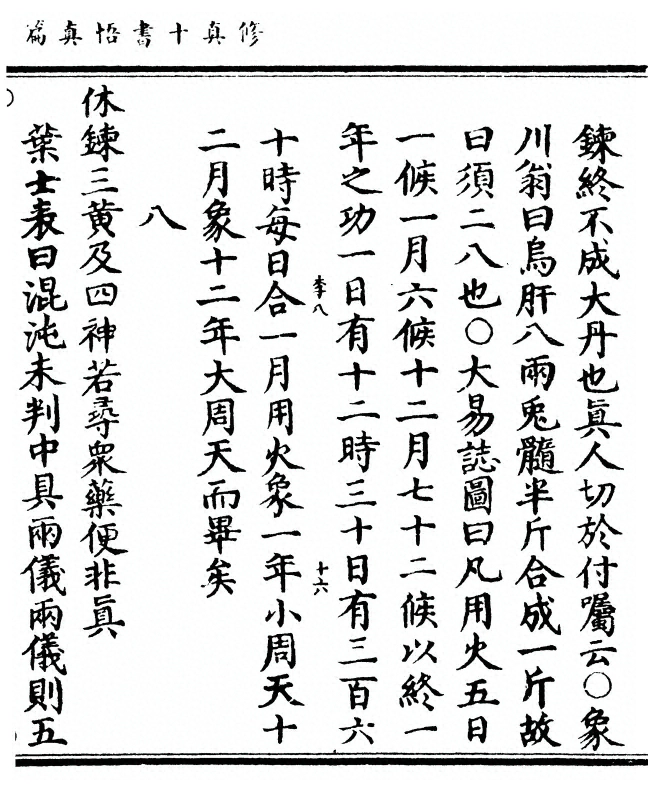 修真十書悟真篇
鍊終不成大丹也眞人切於付囑云○象
川翁曰烏肝八兩兎髓半斤合成一斤故
曰須二八也○大易誌圖曰凡用火五日
一候一月六候十二月七十二候以終一
年之功一日有十二時三十日有三百六
李八
十六
十時每日合一月用火象一年小周天十
二月象十二年大周天而畢矣
八
休鍊三黄及四神若尋衆藥便非眞
葉士表曰混沌未判中具兩儀兩儀則五